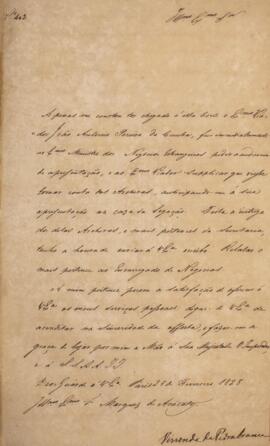 Nº 403
Illmo Exmo Snr
Apenas me constou ter chegado a esta Corte o Exmo
João Antonio Pereira da Cunha, fui immediatamente
ao Exmo Ministro dos Negocios Estrangeiros pedir audiencia
de apresentação, e ao Exmo supplicar que viesse
tomar conta dos Archivos, antecipando-me á sua
apresentação na caza da Legação. Feita a entrega
delas Archivos, e mais pertences da Secretaria,
tenho a honra de enviar a VExa Relator
mais pertence ao Encarregado de Negocios.
A mim pertence porem a satisfação de offerecer á
VExa os meus serviços pessoaes, digne VExa de
acreditar na sinceridade da offerta, e fazer-me a
graça de bejar por mim a Mão á Sua Magestade O Imperador
e á S.S.A.A. I.I.
Deos Guarde a VExa Pariz de Fevereiro 1828
Illmo Exmo Sr Marquez de Aracaty
Visconde da Pedra Branca